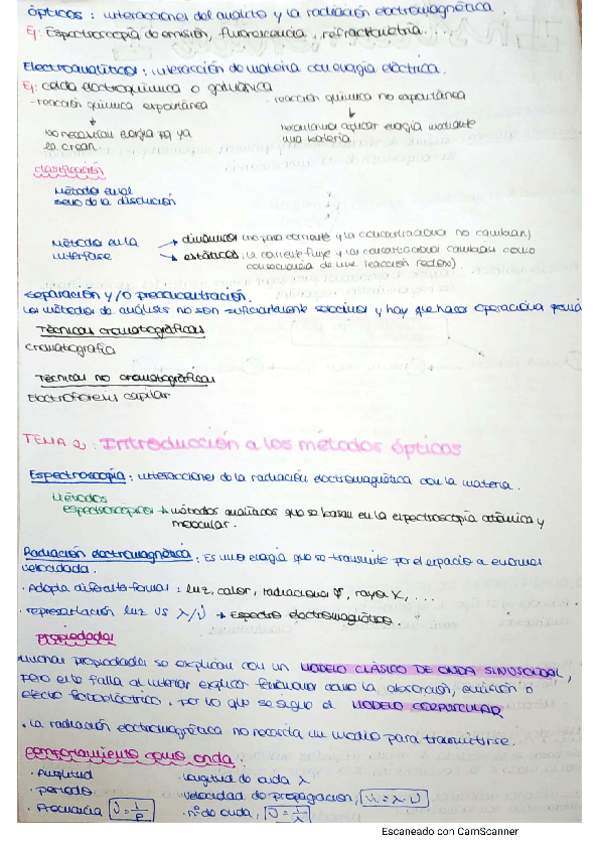 ópticos : interacciones del analito y la radiación electromagnética.
Ej: Espectroscopía de emisión, fluorescencia, refractometría...
Electroanalíticos : interacción de materia con energía eléctrica.
Ej: celda electroquímica o galvánica
- reacción química espontánea
- reacción química no espontánea
no necesitan energía pq ya
la crean
necesitamos aplicar energía mediante
una batería.
Clasificación
Método en el
seno de la disolución
Método en la
interfase
→ dinámicos (no pasa corriente y la concentraciones no cambian)
→ estáticos (la corriente fluye y las concentraciones cambian como
consecuencia de una reacción redox)
Separación y/o preconcentración.
Los métodos de análisis no son suficientemente selectivos y hay que hacer operaciones
Técnicas cromatográficas
cromatografía
Técnicas no cromatográficas
Electroforesis capilar
TEMA 2 : Introducción a los métodos ópticos
Espectroscopía : interacciones de la radiación electromagnética con la materia.
Métodos
espectroscópicos → métodos analíticos que se basan en la espectroscopía atómica y
molecular.
Radiación electromagnética : Es una energía que se transmite por el espacio a enormes
velocidades.
· Adopta diferentes formas : luz, calor, radiaciones γ, rayos X, ...
· representación luz vs λ/ν → Espectro electromagnético.
Propiedades
Muchas propiedades se explican con un MODELO CLÁSICO DE ONDA SINUSOIDAL,
pero este falla al intentar explicar fenómenos como la absorción, emisión o
efecto fotoeléctrico. por lo que se sigue el MODELO CORPUSCULAR
· La radiación electromagnética no necesita un medio para transmitirse.
Comportamiento como onda.
· Amplitud
· Longitud de onda λ
· periodo
· velocidad de propagación, Vi = λ · ν
· Frecuencia ν = 1/P
· nº de onda, ν = 1/λ
Escaneado con CamScanner